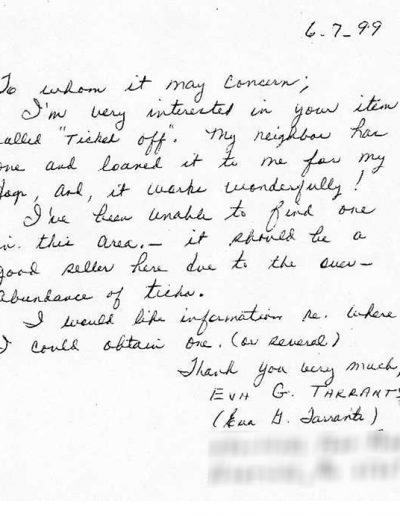 6-7-99
To whom it may concern;
I'm very interested in your item
called "Ticked off". My neighbor has
one and loaned it to me for my
dogs, and, it works wonderfully!
I've been unable to find one
in this area. — it should be a
good seller here due to the over-
abundance of ticks.
I would like information re. where
I could obtain one. (or several)
Thank you very much,
EVA G. TARRANTS
(Eva G. Tarrants)